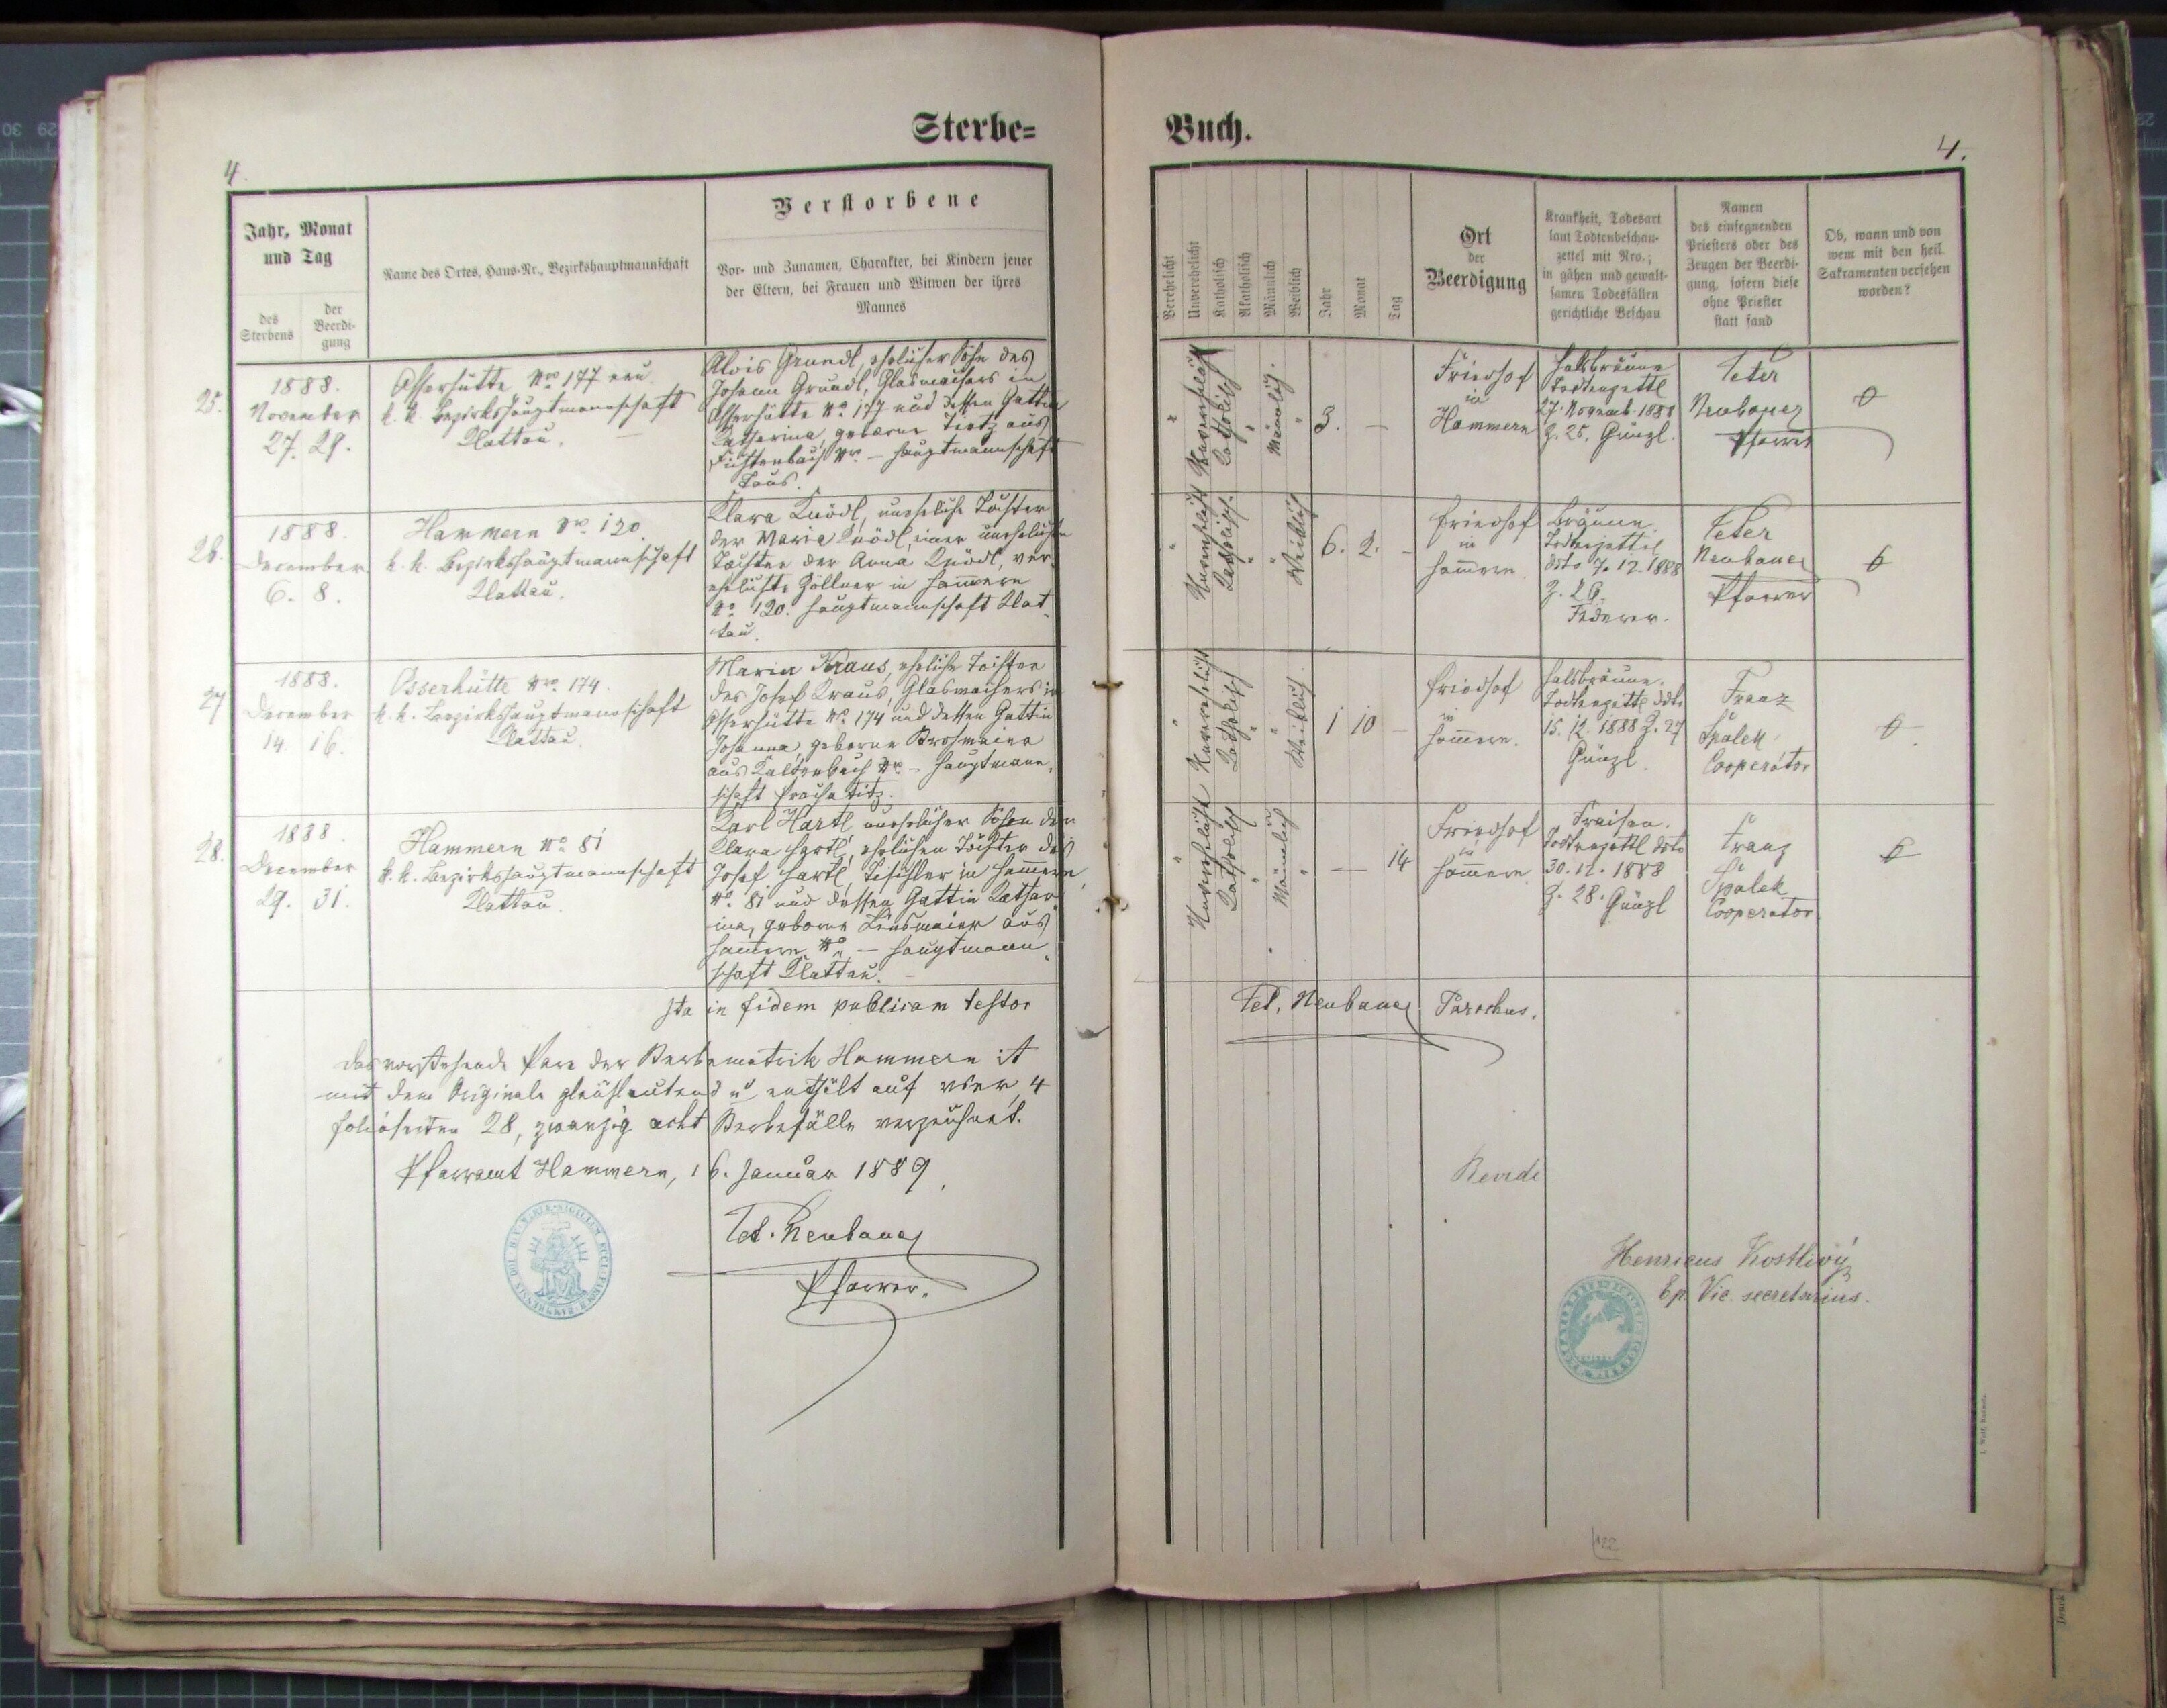 Sterbe=
4.
Jahr, Monat
und Tag
des
Sterbens
der
Beerdi-
gung
Name des Ortes, Haus-Nr., Bezirkshauptmannschaft
Verstorbene
Vor- und Zunamen, Charakter, bei Kindern jener
der Eltern, bei Frauen und Witwen der ihres
Mannes
25.
1888.
November
27. 29.
Osserhütte Nro 177 neu.
k. k. Bezirkshauptmannschaft
Klattau.
Alois Grundl, ehelicher Sohn des
Johann Grundl, Glasmachers in
Osserhütte No 177 und dessen Gattin
Katharina, geborne Tretz aus
Fichtenbach Nro – Hauptmannschaft
Taus.
26.
1888.
December
6. 8.
Hammern Nro 120.
k. k. Bezirkshauptmannschaft
Klattau.
Klara Knödl, uneheliche Tochter
der Maria Knödl, einer unehelichen
Tochter der Anna Knödl, ver-
ehelichte Zöllner in Hammern
No 120. Hauptmannschaft Klat-
tau.
27
1888.
December
14. 16.
Osserhütte Nro. 174.
k. k. Bezirkshauptmannschaft
Klattau.
Maria Kraus, eheliche Tochter
des Josef Kraus, Glasmachers in
Osserhütte No. 174 und dessen Gattin
Johanna, geborne Brosmaier
aus Kaltenbach Nro – Hauptmann-
schaft Prachatitz.
28.
1888.
December
29. 31.
Hammern No 81
k. k. Bezirkshauptmannschaft
Klattau.
Karl Hartl, unehelicher Sohn der
Klara Hartl, ehelichen Tochter des
Josef Hartl, Tischler in Hammern,
No. 81 und dessen Gattin Kathar-
ina, geborne Linsmaier aus
Hammern No – Hauptmann-
schaft Klattau. –
Ita in fidem publicam testor
Das vorstehende Pare der Sterbematrik Hammern ist
mit dem Originale gleichlautend u. enthält auf vier, 4
Folioseiten 28, zwanzig acht Sterbefälle verzeichnet.
Pfarramt Hammern, 16. Januar 1889.
Pet. Neubauer
Pfarrer.
Buch.
4.
Verehelicht
Unverehelicht
Katholisch
Akatholisch
Männlich
Weiblich
Jahr
Monat
Tag
Ort
der
Beerdigung
Krankheit, Todesart
laut Todtenbeschau-
zettel mit Nro.;
in gähen und gewalt-
samen Todesfällen
gerichtliche Beschau
Namen
des einsegnenden
Priesters oder des
Zeugen der Beerdi-
gung, sofern diese
ohne Priester
statt fand
Ob, wann und von
wem mit den heil.
Sakramenten versehen
worden?
Unverehelicht
Katholisch
Männlich.
3. –
Friedhof
in
Hammern
Halsbräune
Todtenzettl
27. Novemb. 1888
Z. 25. Günzl.
Peter
Neubauer
Pfarrer
Unverehelicht
Katholisch.
Weiblich
6. 2. –
Friedhof
in
Hammern.
Bräune.
Todtenzettel
ddto 7. 12. 1888
Z. 26.
Federer.
Peter
Neubauer
Pfarrer
Unverehelicht
Katholisch
Weiblich.
1 10 –
Friedhof
in
Hammern.
Halsbräune.
Todtenzettl ddto
15. 12. 1888 Z. 27
Günzl.
Franz
Špalek
Cooperator
Unverehelicht
Katholisch
Männlich
– 14
Friedhof
in
Hammern
Fraisen.
Todtenzettl ddto
30. 12. 1888
Z. 28. Günzl
Franz
Špalek
Cooperator.
Pet. Neubauer Parochus.
Henricus Kostlivý
Ep. Vic. secretarius.
122